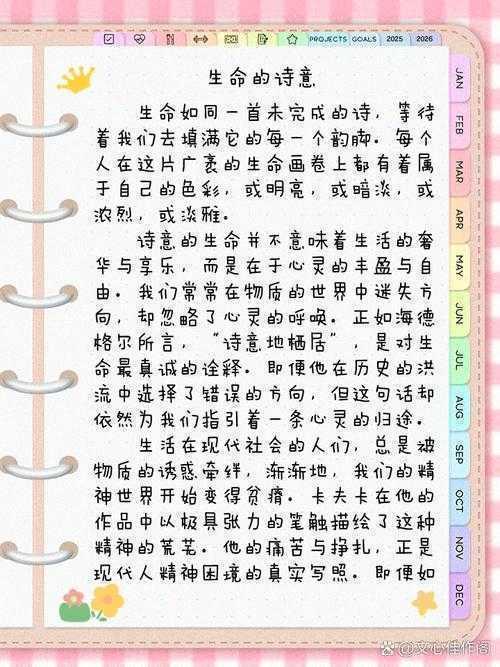 PROJECTS GOALS 2025 2026
生命的诗意
生命如同一首未完成的诗，等待
着我们去填满它的每一个韵脚。每个
人在这片广袤的生命画卷上都有着属
于自己的色彩，或明亮，或暗淡，或
浓烈，或淡雅。
诗意的生命并不意味着生活的奢
华与享乐，而是在于心灵的丰盈与自
由。我们常常在物质的世界中迷失方
向，却忽略了心灵的呼唤。正如海德
格尔所言，“诗意地栖居”，是对生
命最真诚的诠释。即便他在历史的洪
流中选择了错误的方向，但这句话却
依然为我们指引着一条心灵的归途。
生活在现代社会的人们，总是被
物质的诱惑牵绊，渐渐地，我们的精
神世界开始变得贫瘠。卡夫卡在他的
作品中以极具张力的笔触描绘了这种
精神的荒芜。他的痛苦与挣扎，正是
现代人精神困境的真实写照。即便如
JAN
FEB
MAR
APR
MAY
JUN
JUL
AUG
SEP
OCT
NOV
DEC
@文心佳作阁